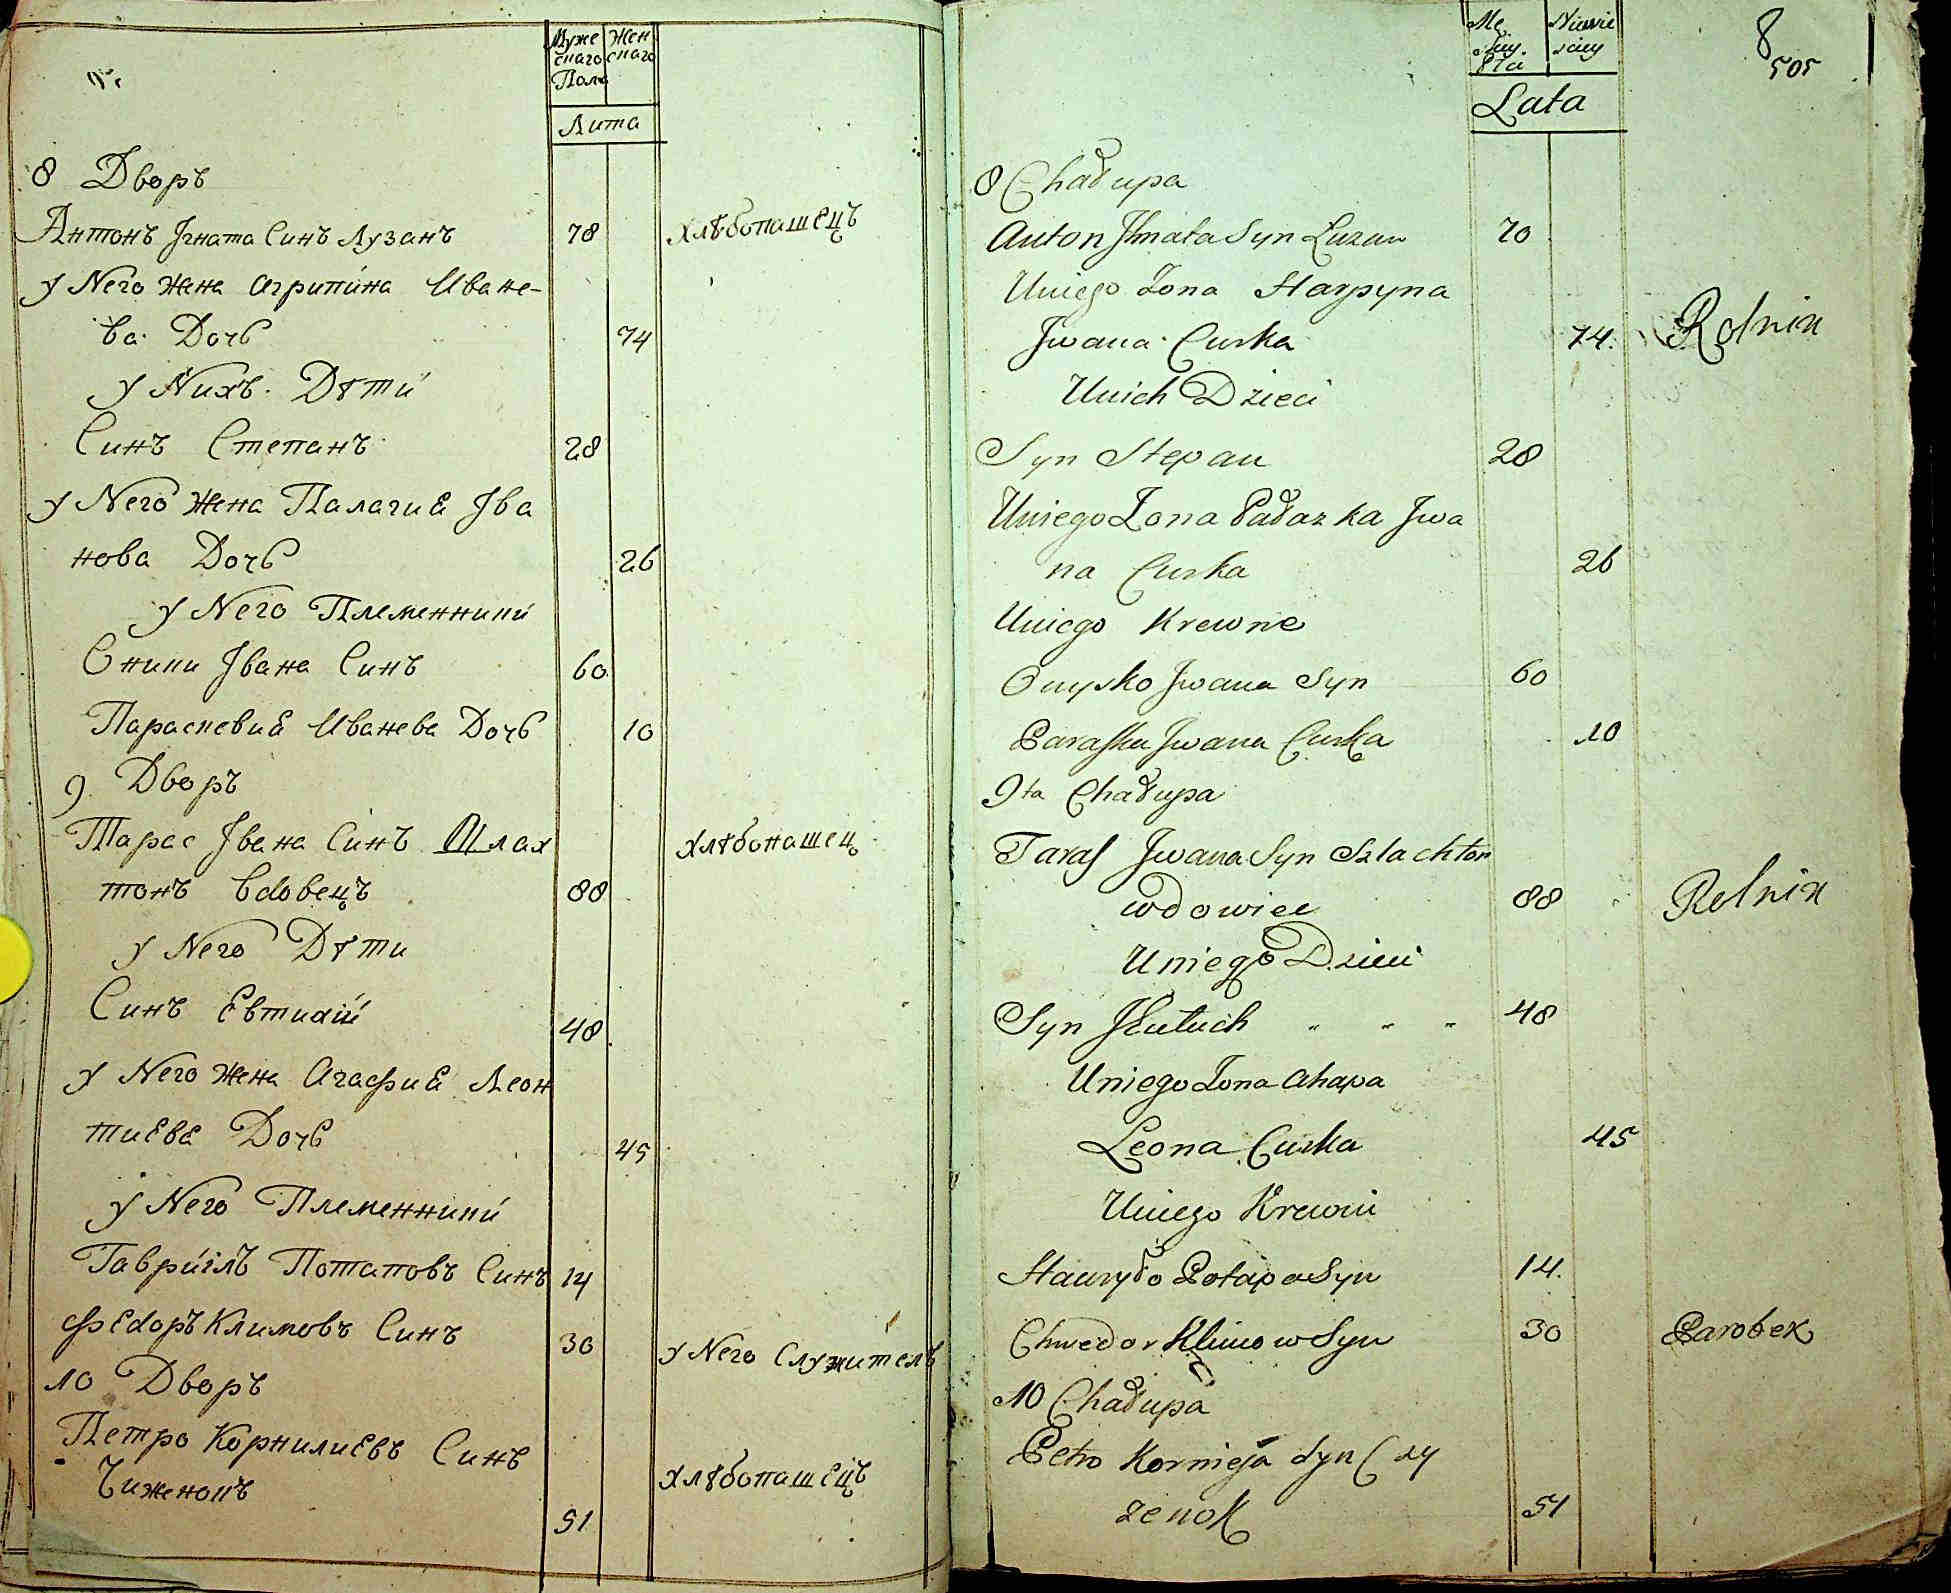 Муже Жен
скаго скаго
Пола
Лита
8 Дворъ
Антонъ Ігната Синъ Лузанъ 78 Хлѣбопашецъ
у Него жена Агрипина Иване-
ва Дочь 74
у Нихъ Дѣти
Синъ Степанъ 28
у Него Жена Палагиа Іва
нова Дочь 26
у Него Племенники
Оники Івана Синъ 60
Параскевиа Иванева Дочь 10
9 Дворъ
Тарас Івана Синъ Шлах Хлѣбопашец
тонъ вдовецъ 88
у Него Дѣти
Синъ Евтихій 48
у Него жена Агафиа Леон
тиева Дочь 45
у Него Племенники
Гавриілъ Потаповъ Синъ 14
Федоръ Климовъ Синъ 30 у Него Служитель
10 Дворъ
Петро Корнилиевъ Синъ
Чиженокъ 51 Хлѣбопашецъ
8
505
Lata
8 Chałupa
Anton Ihnata Syn Luzan 70
Uniego Zona Harpyna
Jwana Curka 74. Rolnik
Unich Dzieci
Syn Stepan 28
Uniego Zona Pałazka Jwa
na Curka 26
Uniego Krewne
Onysko Jwana Syn 60
Paraska Jwana Curka 10
9ta Chałupa
Taras Jwana Syn Szlachton
wdowiec 88 Rolnik
Uniego Dzieci
Syn Jeutuch " " " 48
Uniego Zona Ahapa
Leona Curka 45
Uniego Krewni
Hawryło Potapa Syn 14.
Chwedor Klimow Syn 30 Parobek
10 Chałupa
Petro Kornieja Syn Czy
zenok 51